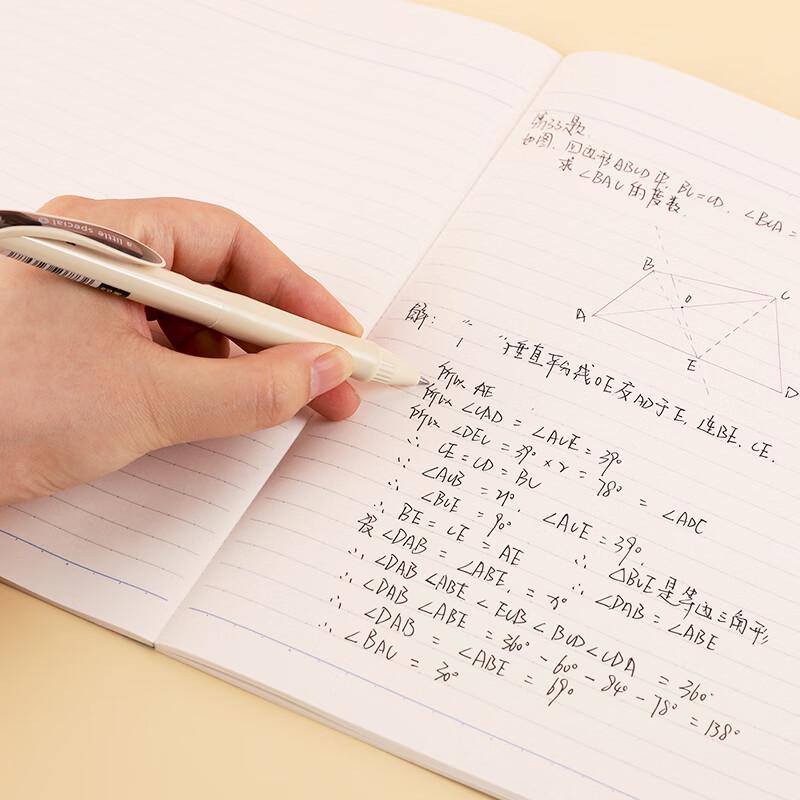 第33题.
如图, 四边形ABCD中, BC=CD, ∠BCA=
求 ∠BAC的度数.
B
C
O
A
E
D
解:
垂直平分线OE交AD于E, 连BE, CE.
所以 AE
所以 ∠CAD = ∠ACE = 39°
所以 ∠DEC = 39° × 2 = 78° = ∠ADC
∴ CE = CD = BC
∴ ∠ACB = 21°, ∠ACE = 39°.
∴ ∠BCE = 60° ∴ △BCE是等边三角形
∴ BE = CE = AE ∴ ∠DAB = ∠ABE
设∠DAB = ∠ABE = x°
∴ ∠DAB ∠ABE ∠ECB ∠BCD ∠CDA = 360°
∴ ∠DAB ∠ABE = 360° - 60° - 84° - 78° = 138°
∴ ∠DAB = ∠ABE = 69°
∴ ∠BAC = 30°
a little special